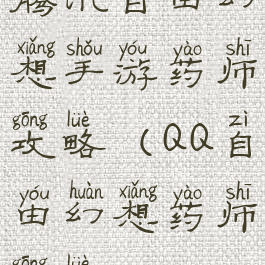 腾讯自由幻
xiǎng shǒu yóu yào shī
想手游药师
gōng lüè zì
攻略（QQ自
yóu huàn xiǎng yào shī
由幻想药师
gōng lüè